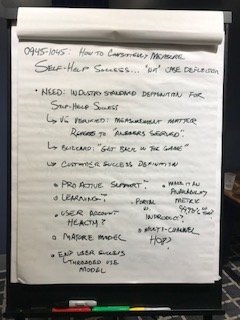 0945-1045: HOW TO CONSISTENTLY MEASURE
SELF-HELP SUCCESS... "NA" CASE DEFLECTION
• NEED: INDUSTRY STANDARD DEFINITION FOR
SELF-HELP SUCCESS
↳ VG VERIFIED: MEASUREMENT MATTER
REFERS TO "ANSWERS SERVED".
↳ BLIZZARD: "GET BACK IN THE GAME"
↳ CUSTOMER SUCCESS DEFINITION
• PROACTIVE SUPPORT?
• LEARNING?
• USER ACCOUNT
HEALTH?
• MATURE MODEL
• END USER SUCCESS
THREADED USE
MODEL
• MAKE IT AN
AVAILABILITY
METRIC
99.98%
• PORTAL
VS.
IN PRODUCT?
• MULTI-CHANNEL
HOP?